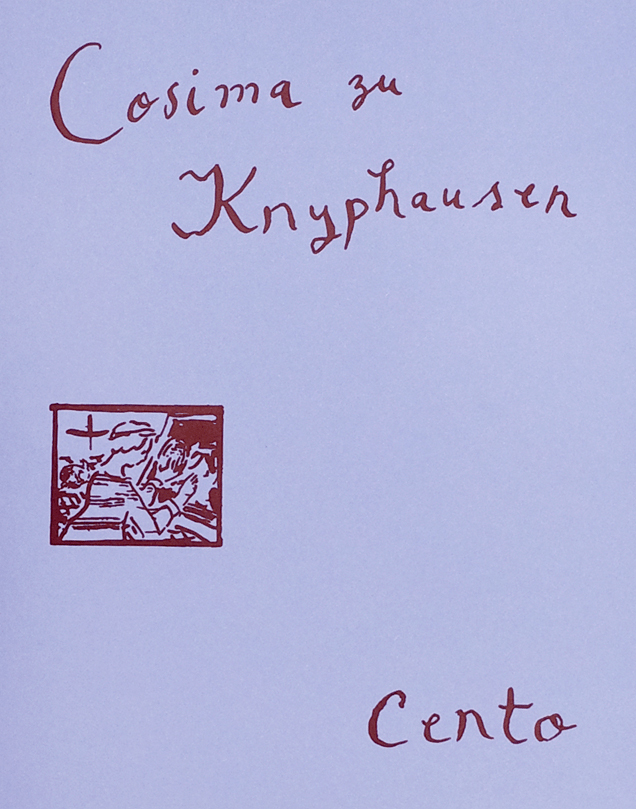 Cosima zu
Knyphausen
Cento